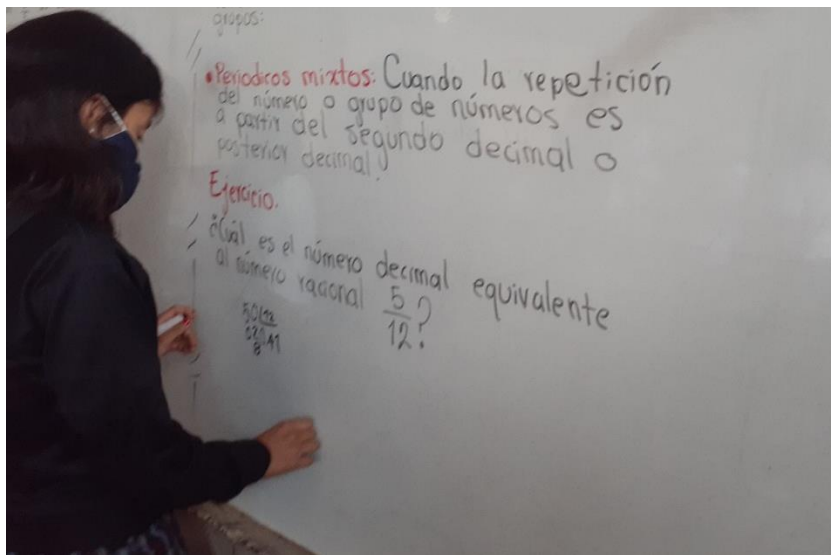 grupos:
• Periodicos mixtos: Cuando la repetición
del número o grupo de números es
a partir del segundo decimal o
posterior decimal.
Ejercicio.
¿Cuál es el número decimal equivalente
al número racional 5/12?
50 12
020 41
8